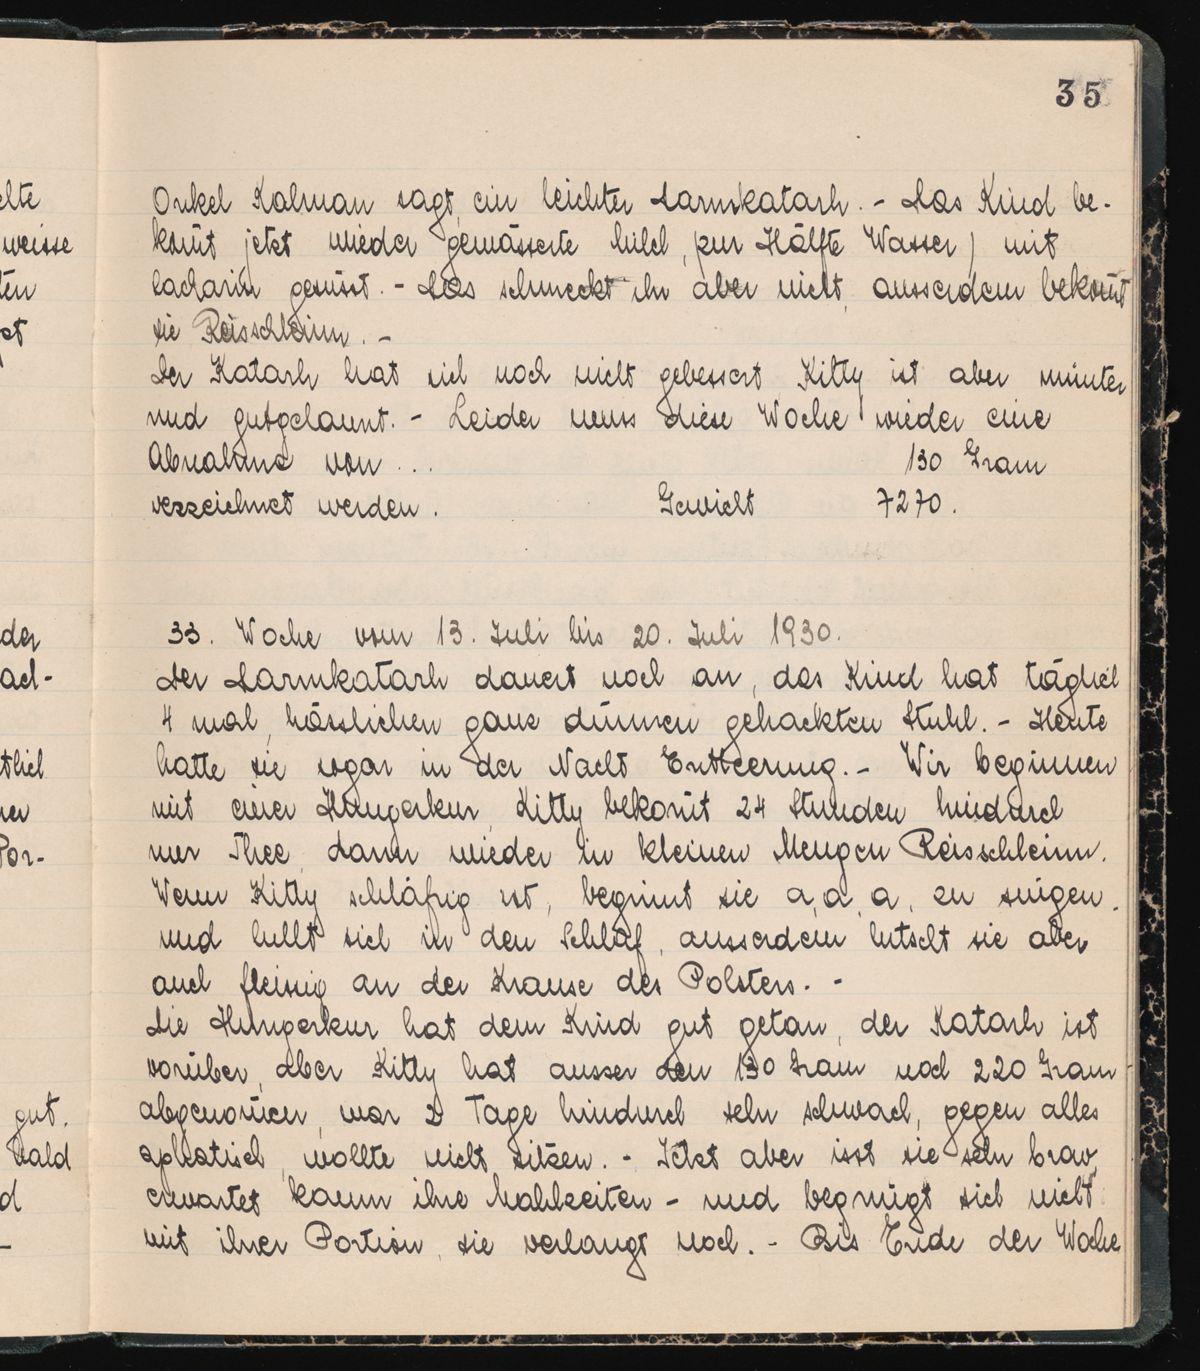 35
Onkel Kalman sagt, ein leichter Darmkatarh. - Das Kind be-
kom̄t jetzt wieder gewässerte Milch, (zur Hälfte Wasser) mit
Sacharin gesüsst. - Das schmeckt ihr aber nicht, ausserdem bekom̄t
sie Reisschleim. -
Der Katarh hat sich noch nicht gebessert Kitty ist aber munter
und gutgelaunt. - Leider muss diese Woche wieder eine
Abnahme von ... 130 Gram
verzeichnet werden. Gewicht 7270.
33. Woche vom 13. Juli bis 20. Juli 1930.
Der Darmkatarh dauert noch an, das Kind hat täglich
4 mal, hässlichen ganz dünnen gehackten Stuhl. - Heute
hatte sie sogar in der Nacht Entleerung. - Wir beginnen
mit einer Hungerkur, Kitty bekom̄t 24 Stunden hindurch
nur Thee, dann wieder in kleinen Mengen Reisschleim.
Wenn Kitty schläfrig ist, beginnt sie a, a, a, zu singen,
und lullt sich in den Schlaf, ausserdem lutscht sie aber
auch fleissig an der Krause des Polsters. -
Die Hungerkur hat dem Kind gut getan, der Katarh ist
vorüber, aber Kitty hat ausser den 130 Gram noch 220 Gram
abgenom̄en, war 2 Tage hindurch sehr schwach, gegen alles
aphatisch, wollte nicht sitzen. - Jetzt aber isst sie sehr brav,
erwartet kaum ihre Mahlzeiten - und begnügt sich nicht
mit ihrer Portion, sie verlangt noch. - Bis Ende der Woche
elte
weisse
ten
der
ach-
tlich
ner
Por-
gut.
bald
d